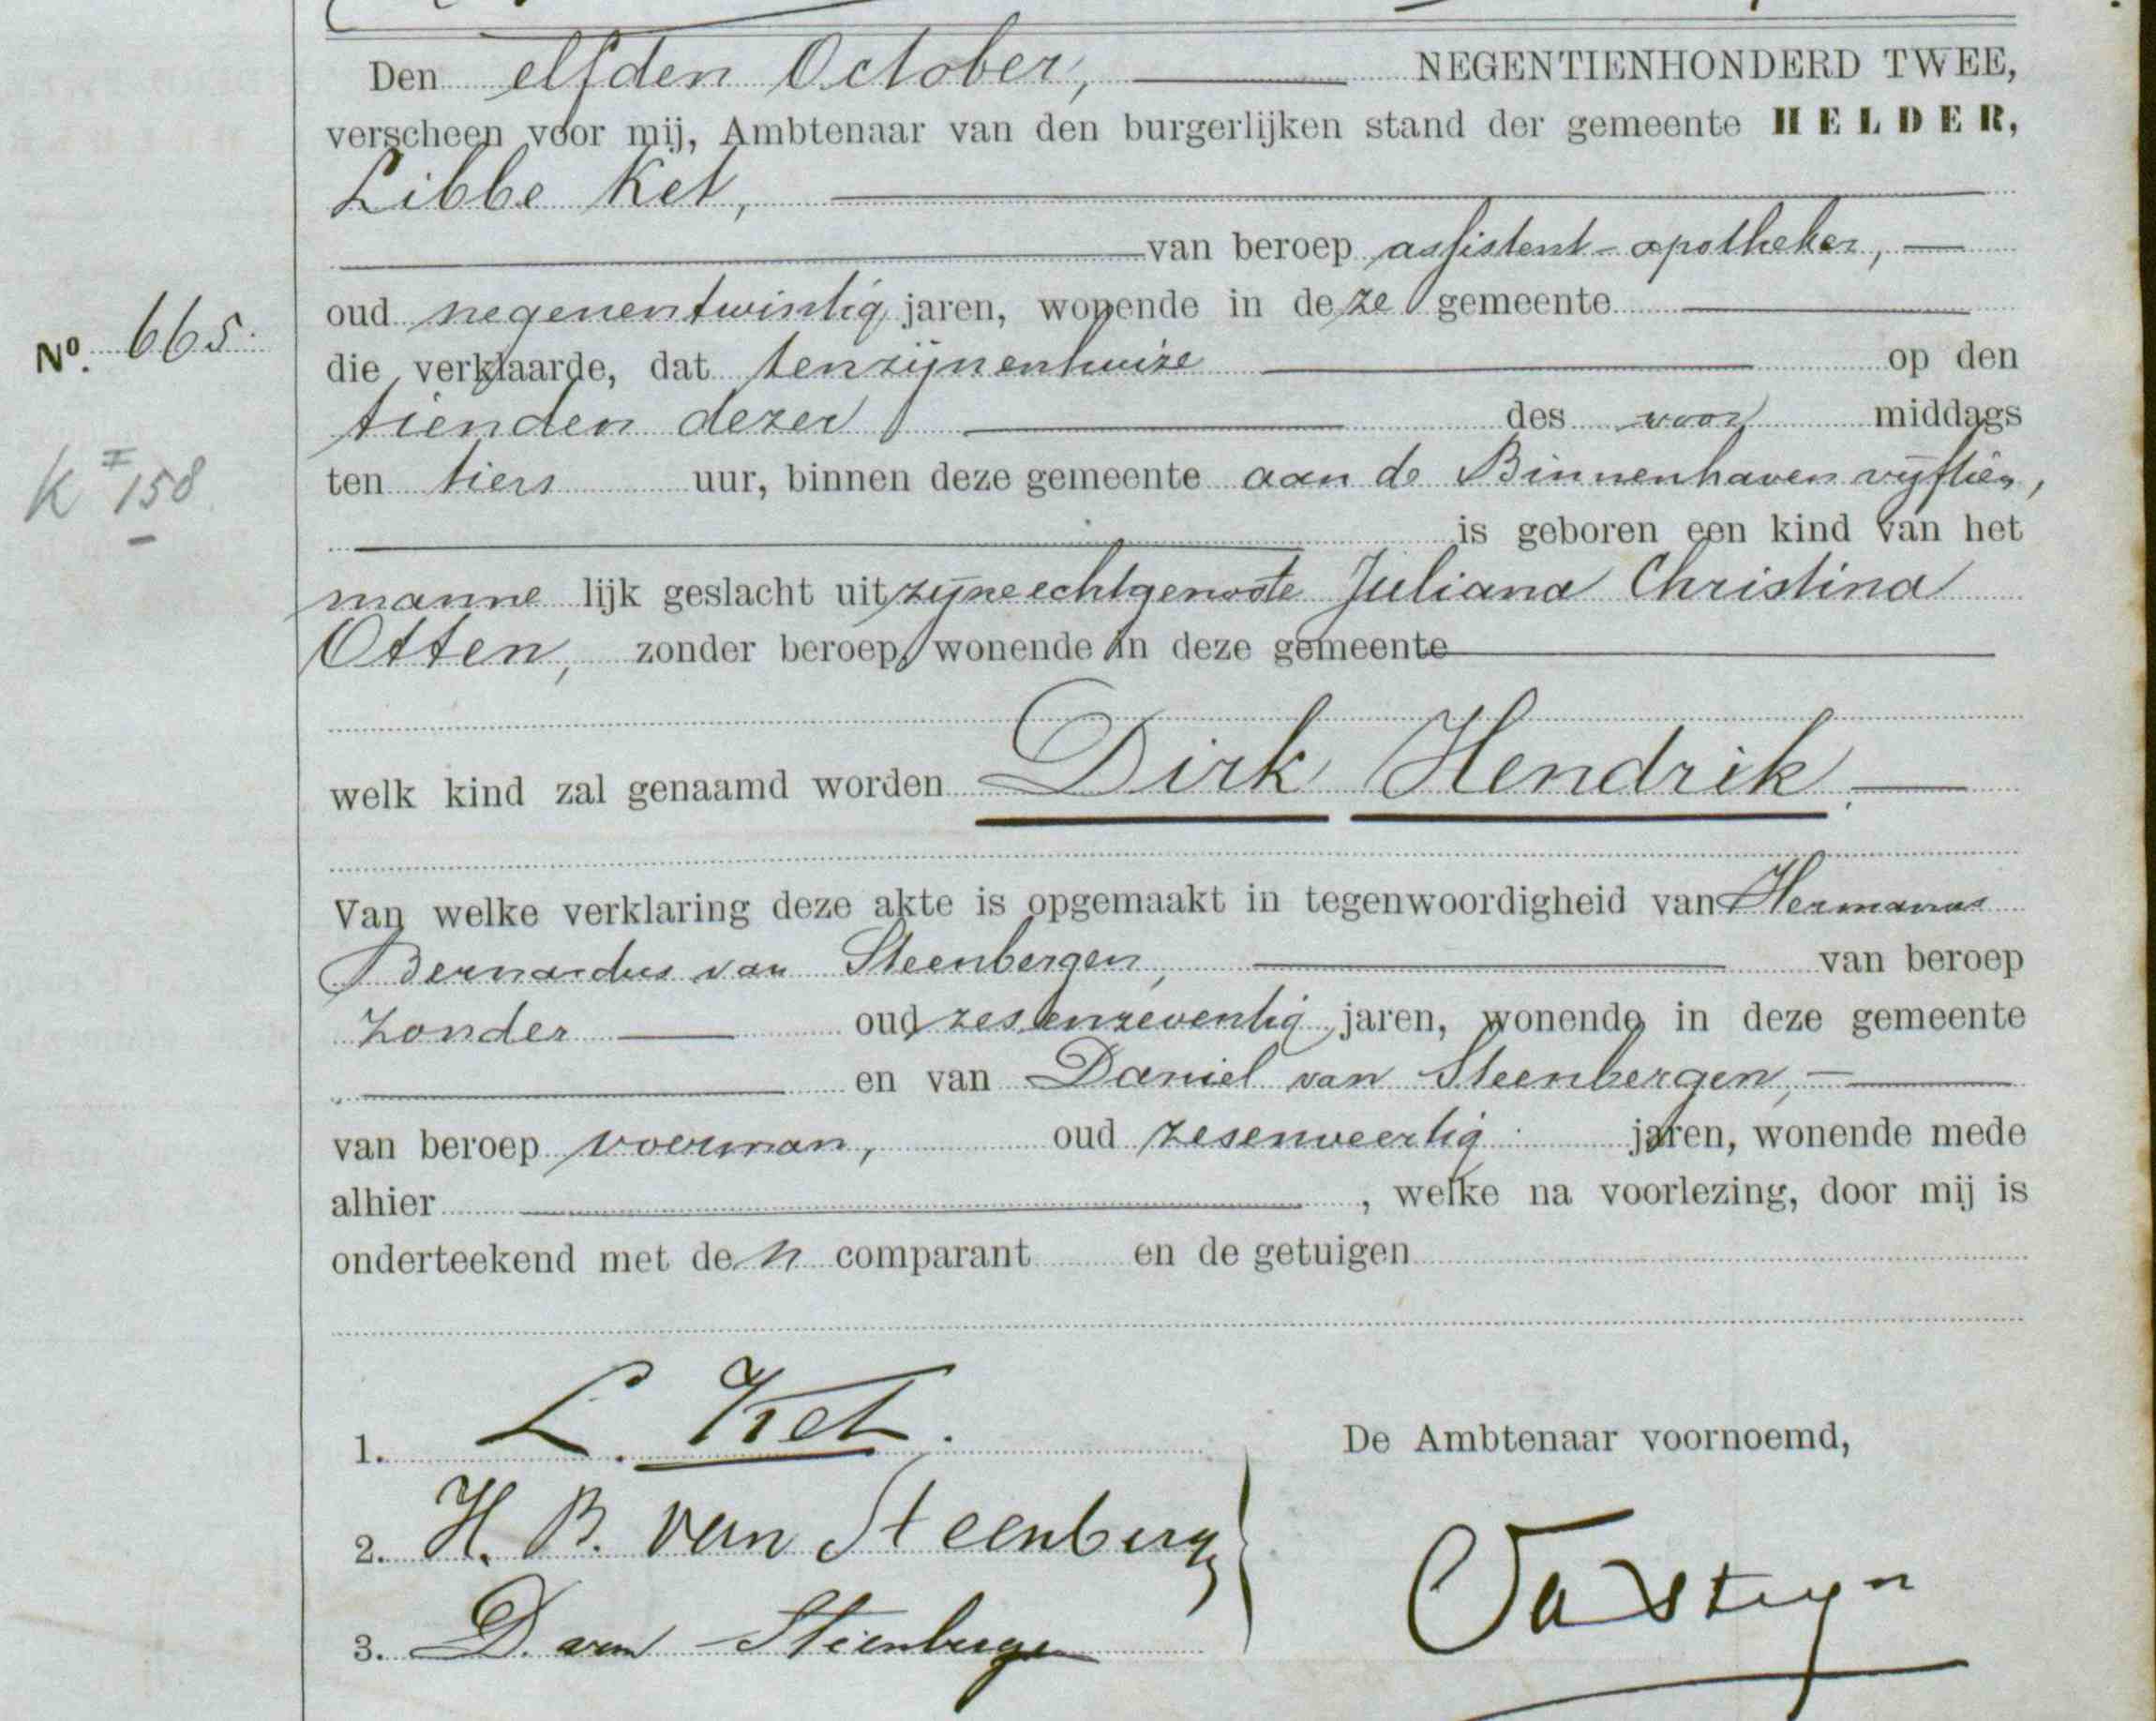 Den elfden October, NEGENTIENHONDERD TWEE,
verscheen voor mij, Ambtenaar van den burgerlijken stand der gemeente HELDER,
Libbe Ket,
van beroep assistent-apotheker,
oud negenentwintig jaren, wonende in deze gemeente
Nº. 665.
die verklaarde, dat tenzijnenhuize op den
tienden dezer des voor middags
K I 158
ten tien uur, binnen deze gemeente aan de Binnenhaven vijftien,
is geboren een kind van het
manne lijk geslacht uit zijne echtgenoote Juliana Christina
Otten, zonder beroep, wonende in deze gemeente
welk kind zal genaamd worden Dirk Hendrik.
Van welke verklaring deze akte is opgemaakt in tegenwoordigheid van Hermanus
Bernardus van Steenbergen, van beroep
zonder oud zesenzeventig jaren, wonende in deze gemeente
en van Daniel van Steenbergen,
van beroep voerman, oud zesenveertig jaren, wonende mede
alhier , welke na voorlezing, door mij is
onderteekend met de n comparant en de getuigen
1. L. Ket.
De Ambtenaar voornoemd,
2. H. B. van Steenbergen
3. D. van Steenbergen